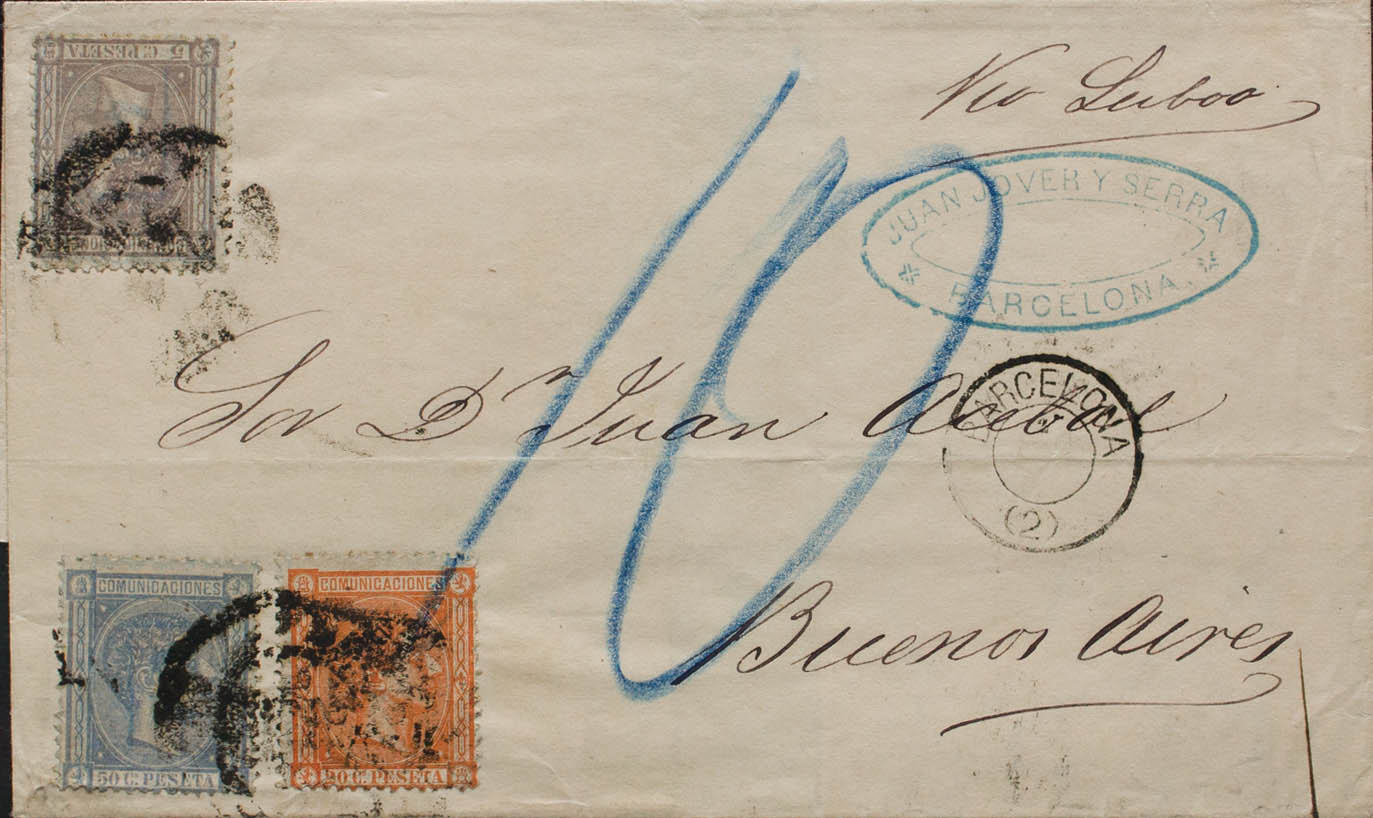 5 C. PESETA
Via Lisboa
JUAN JOVER Y SERRA
BARCELONA
BARCELONA
(2)
10
Sor Dn Juan
Buenos Aires
COMUNICACIONES
50 C. PESETA
COMUNICACIONES
20 C. PESETA